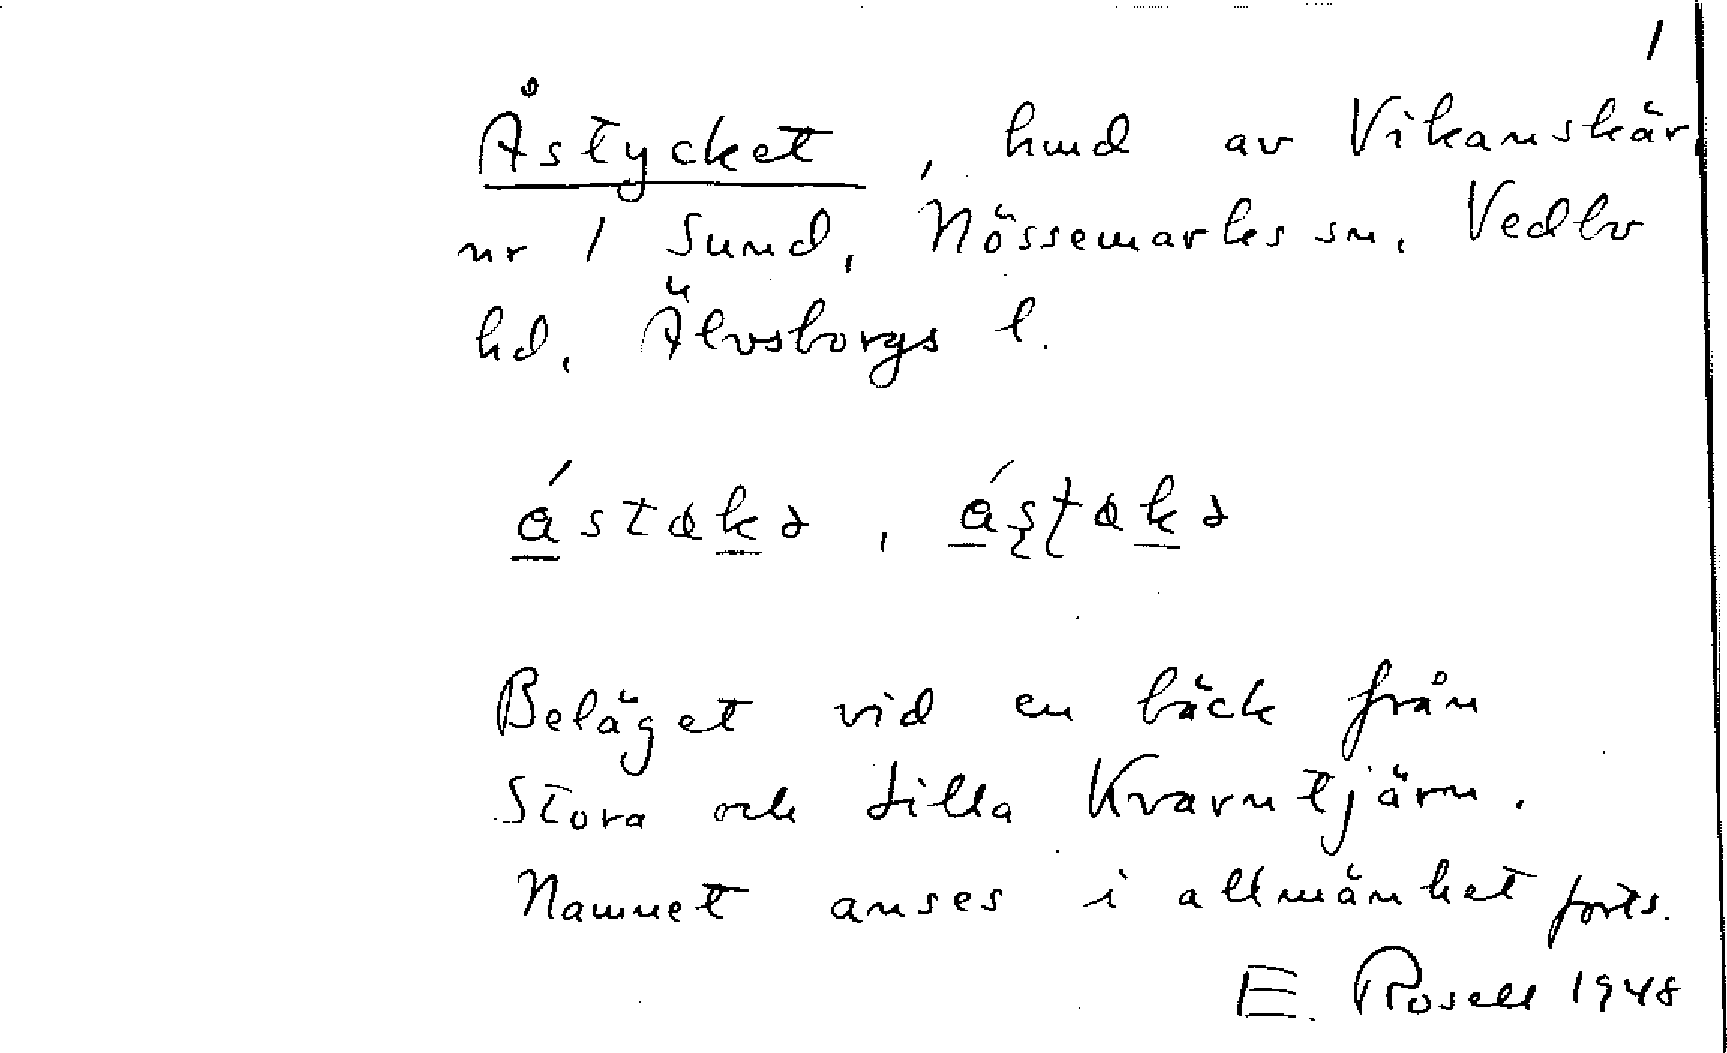 1
Åstycket, hmd av Vikanskär
nr 1 Sund, Nössemarks sn, Vedbo
hd, Älvsborgs l.
Beläget vid en bäck från
Stora och Lilla Kvarntjärn.
Namnet anses i allmänhet forts.
E. Rosell 1948